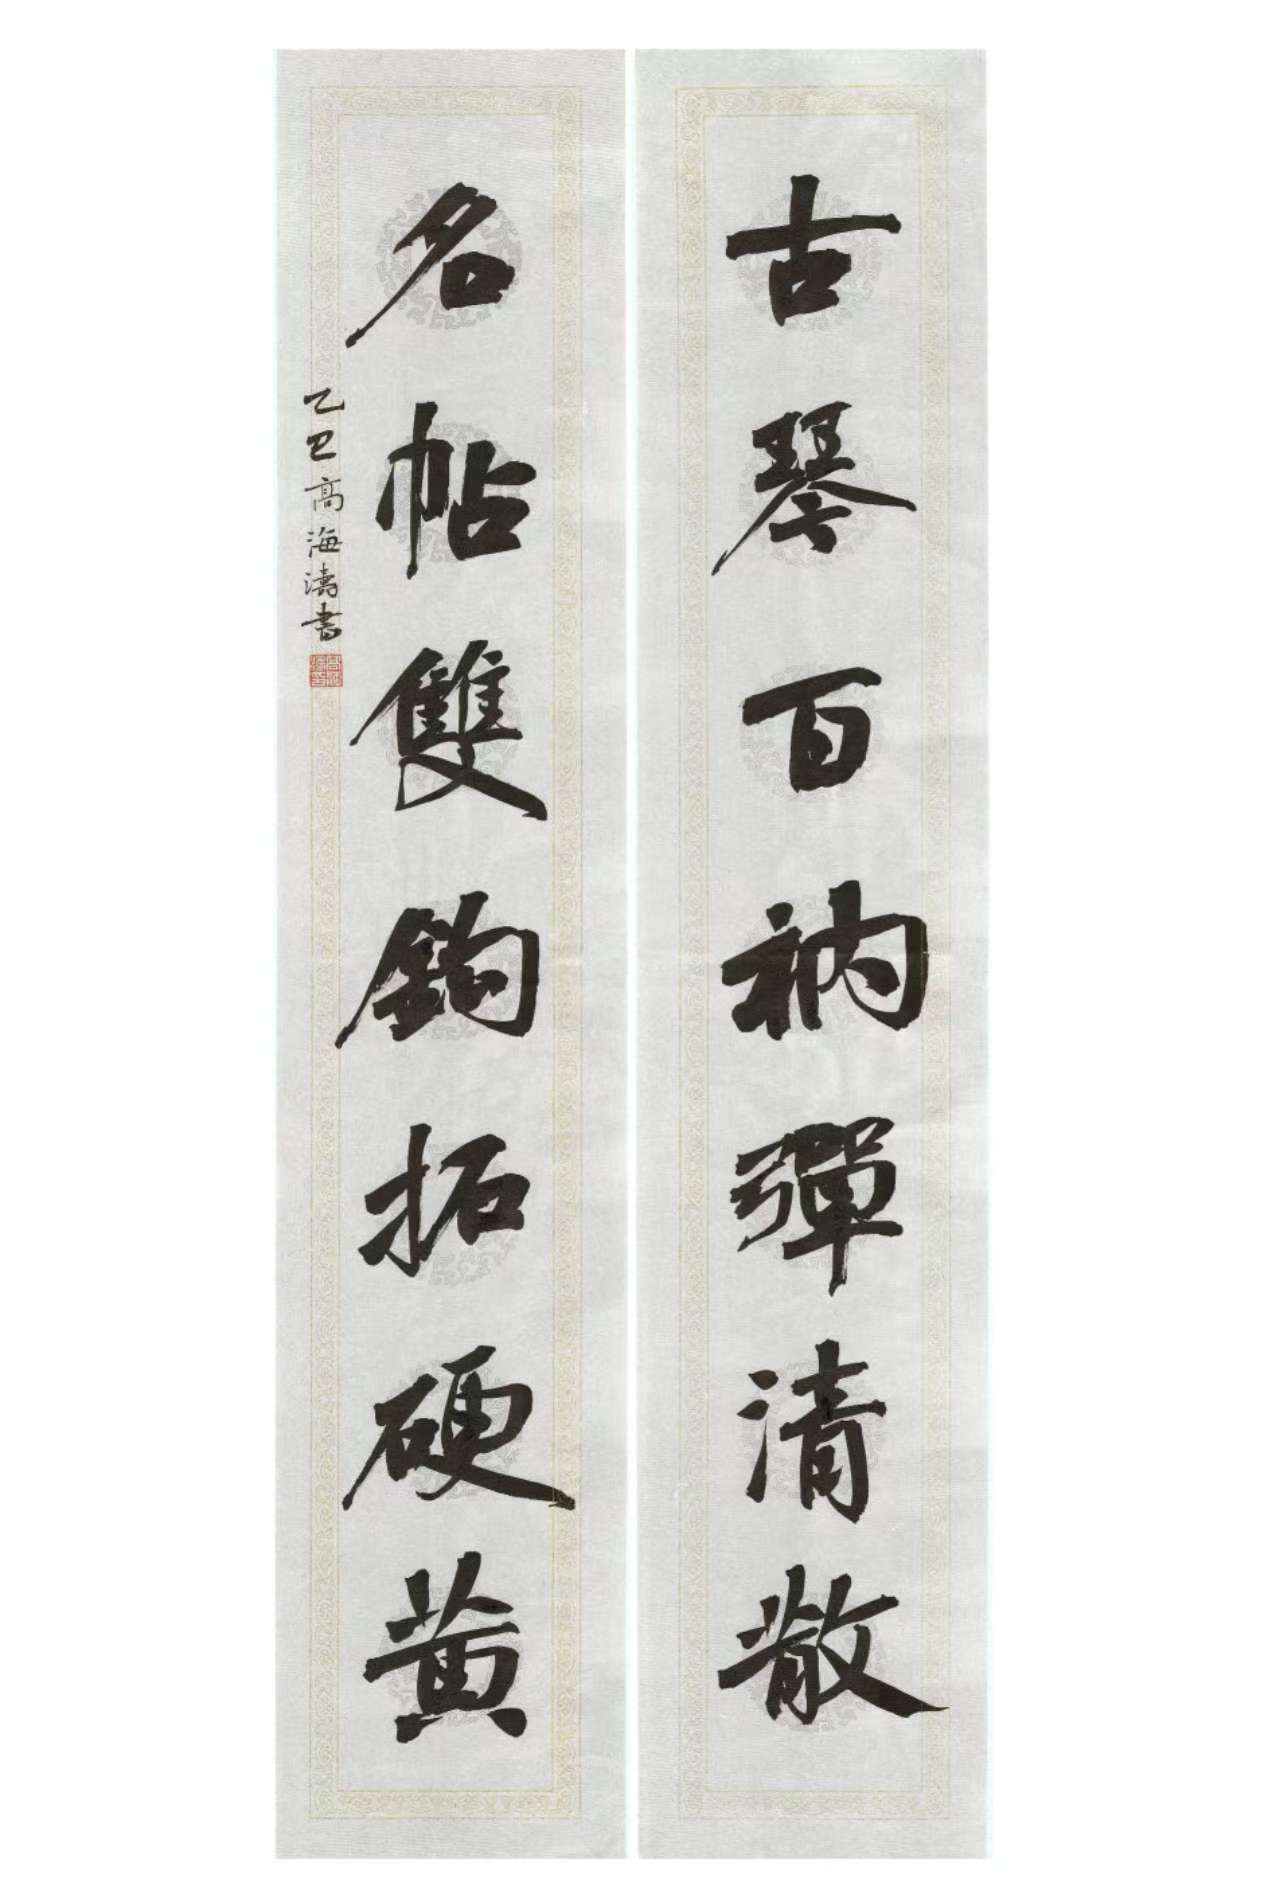 古琴百衲彈清散
名帖雙鉤拓硬黃
乙巳高海濤書